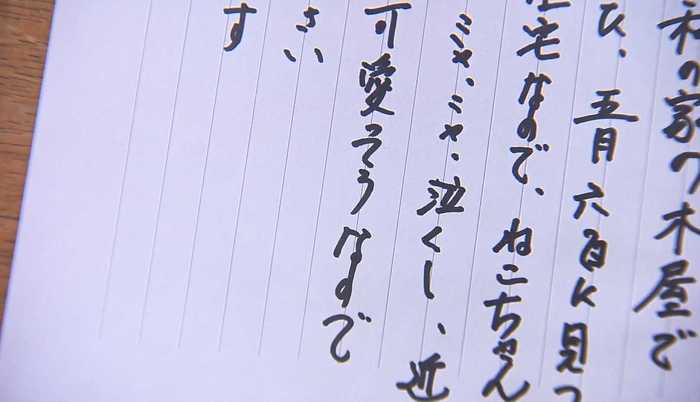 私の家の木屋で
ひ、五月六日に見つ
宅なので、ねこちゃん
ミャ、ミャ、泣くし、近
可愛そうなので
さい
す